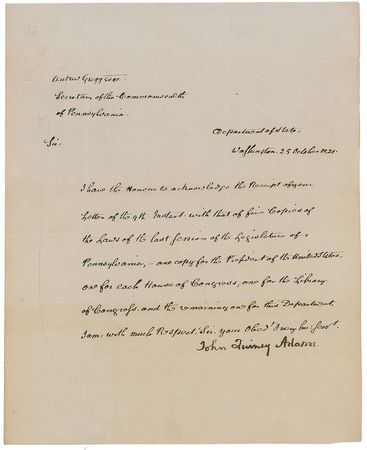 Andrew Gregg Esqr.
Secretary of the Commonwealth
of Pennsylvania.
Sir.
Department of State.
Washington. 25 October 1821.
I have the Honour to acknowledge the Receipt of your
Letter of the 9th Instant. with that of five Copies of
the Laws of the last Session of the Legislature of
Pennsylvania, - one copy for the President of the United States,
one for each House of Congress, one for the Library
of Congress, and the remaining one for this Department.
I am, with much Respect, Sir, your Obedt. very hu: Servt.
John Quincy Adams.